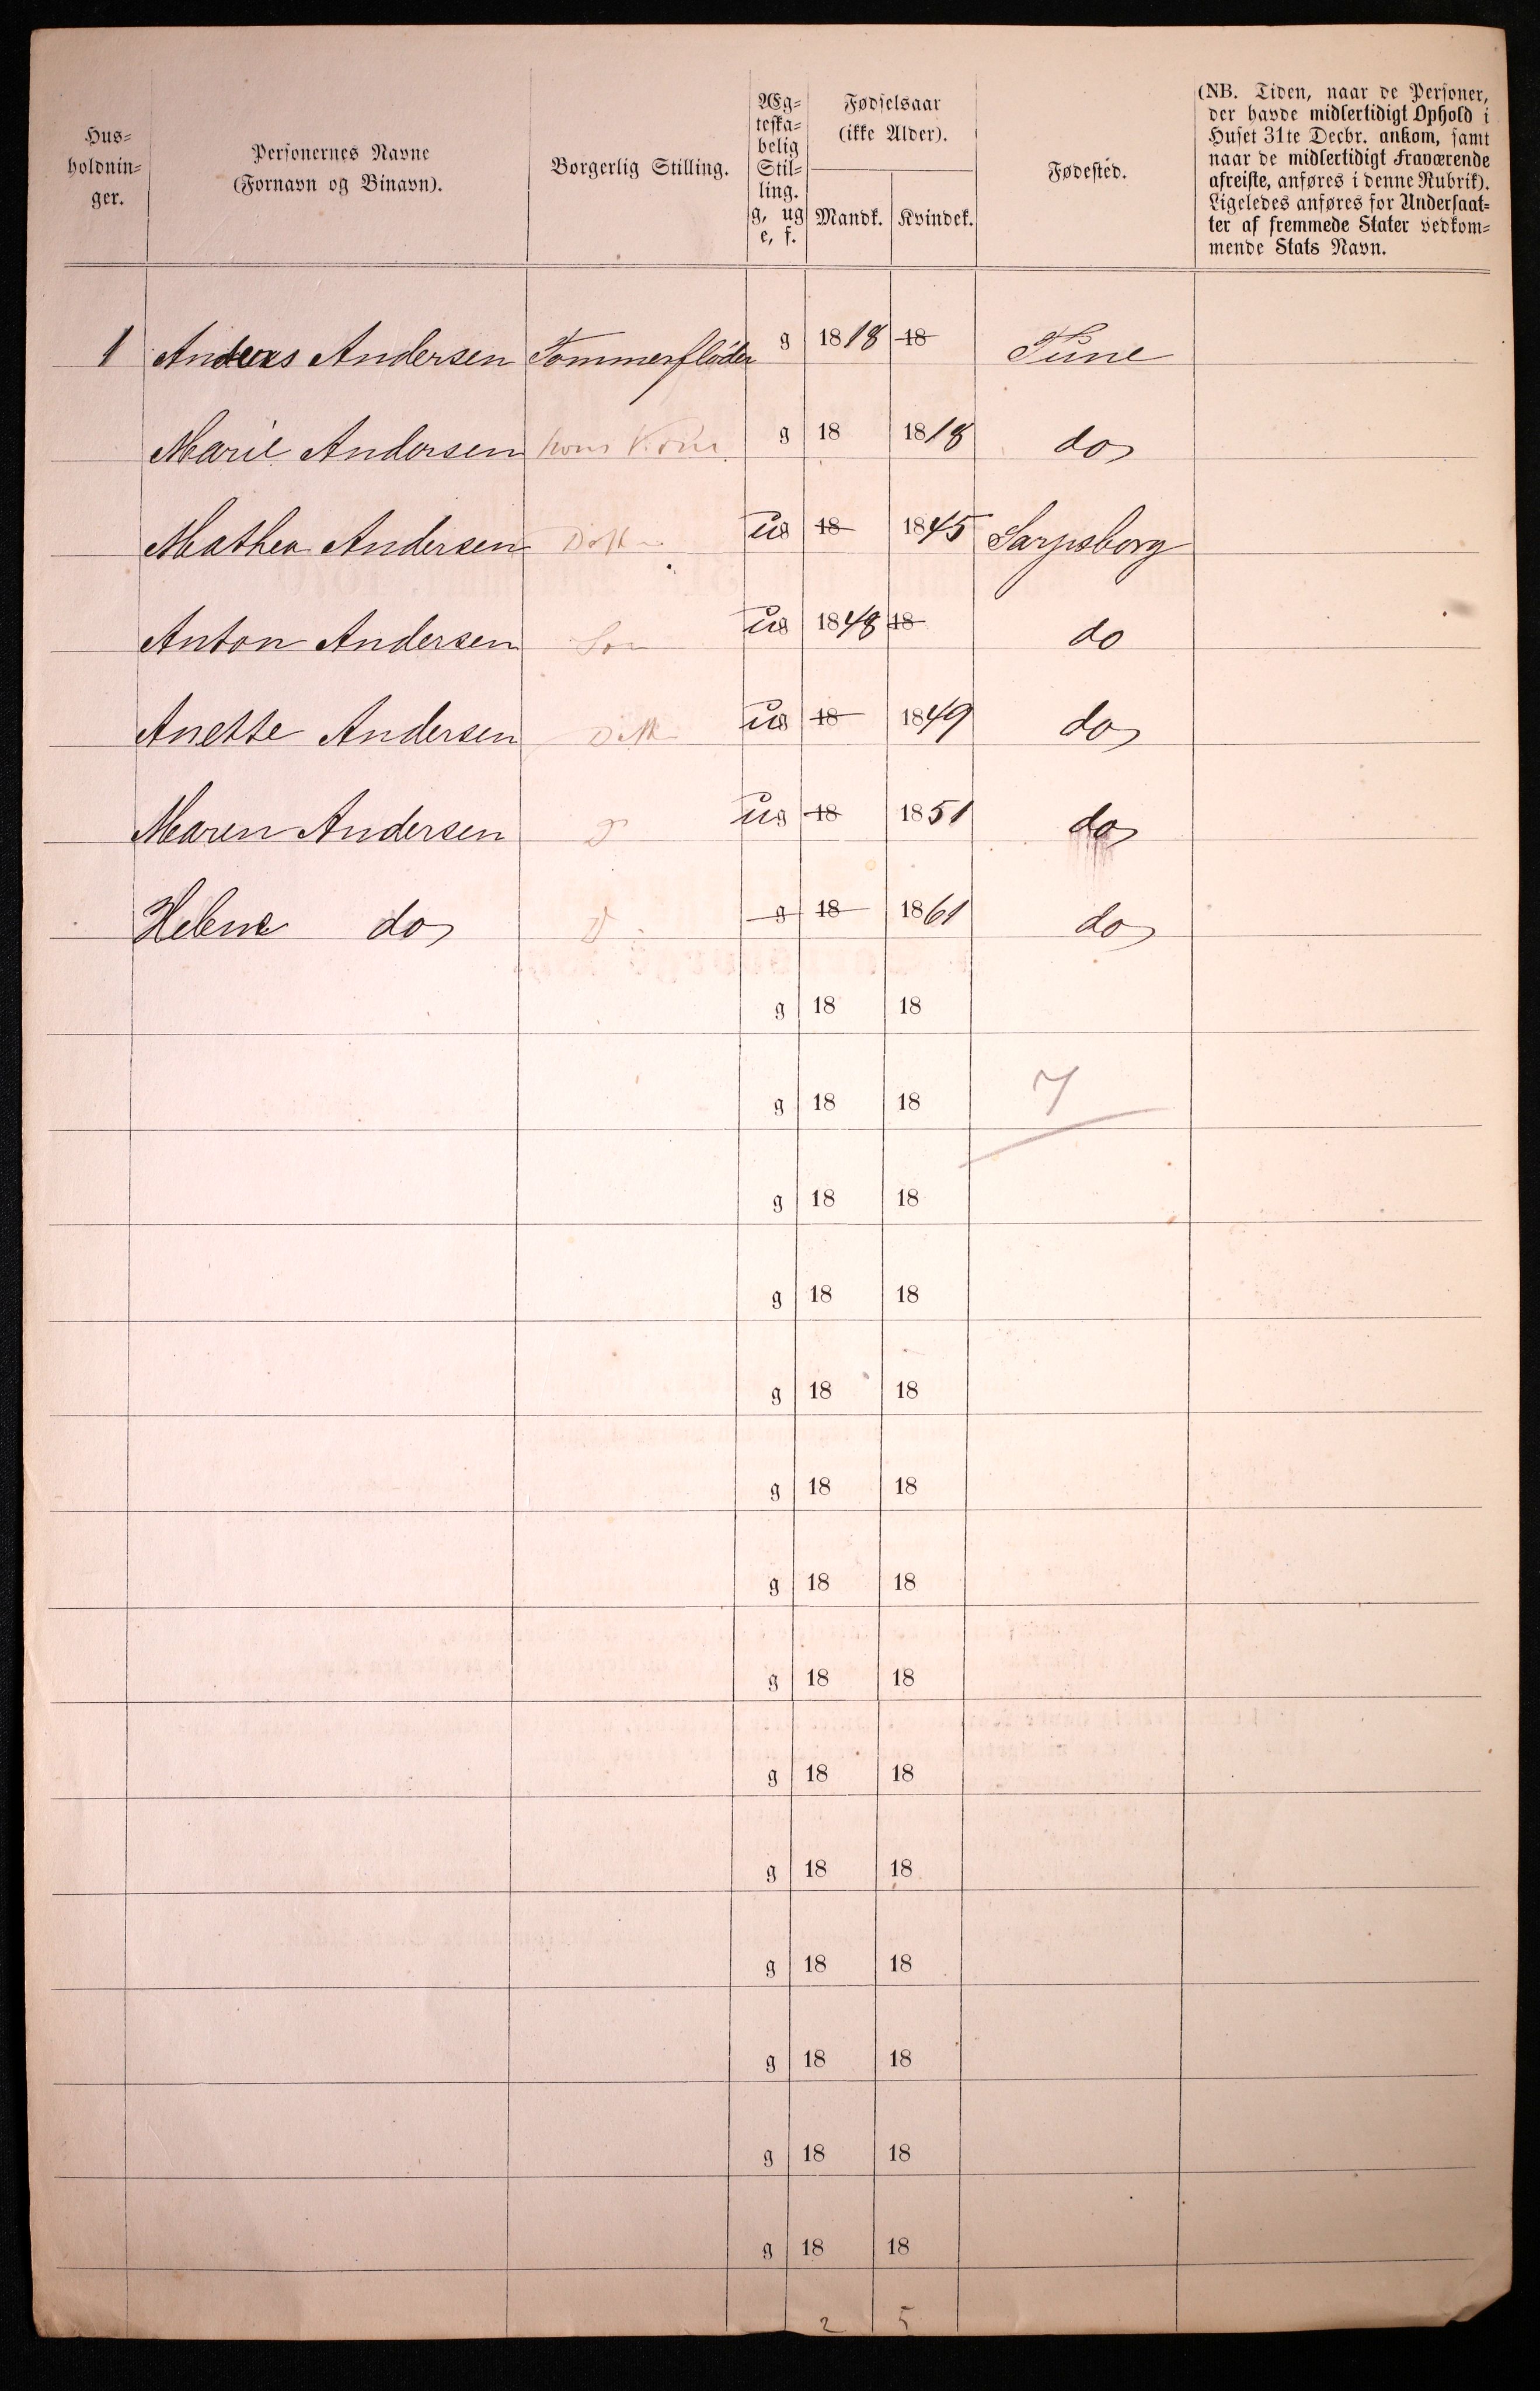 Hus=
holdnin=
ger.
Personernes Navne
(Fornavn og Binavn).
Borgerlig Stilling.
Æg=
teska=
belig
Stil=
ling.
g, ug
e, f.
Fødselsaar
(ikke Alder).
Mandk. Kvindek.
Fødested.
(NB. Tiden, naar de Personer,
der havde midlertidigt Ophold i
Huset 31te Decbr. ankom, samt
naar de midlertidigt Fraværende
afreiste, anføres i denne Rubrik).
Ligeledes anføres for Undersaat=
ter af fremmede Stater vedkom=
mende Stats Navn.
1 Andreas Andersen Tømmerfløder g 1818 18 Tune
Marie Andersen hans Kone g 18 1818 do
Mathea Andersen Datter ug 18 1845 Sarpsborg
Anton Andersen Søn ug 1848 18 do
Anette Andersen Datt ug 18 1849 do
Maren Andersen D ug 18 1851 do
Helene do D g 18 1861 do
g 18 18
g 18 18 7
g 18 18
g 18 18
g 18 18
g 18 18
g 18 18
g 18 18
g 18 18
g 18 18
g 18 18
g 18 18
g 18 18
g 18 18
2 5